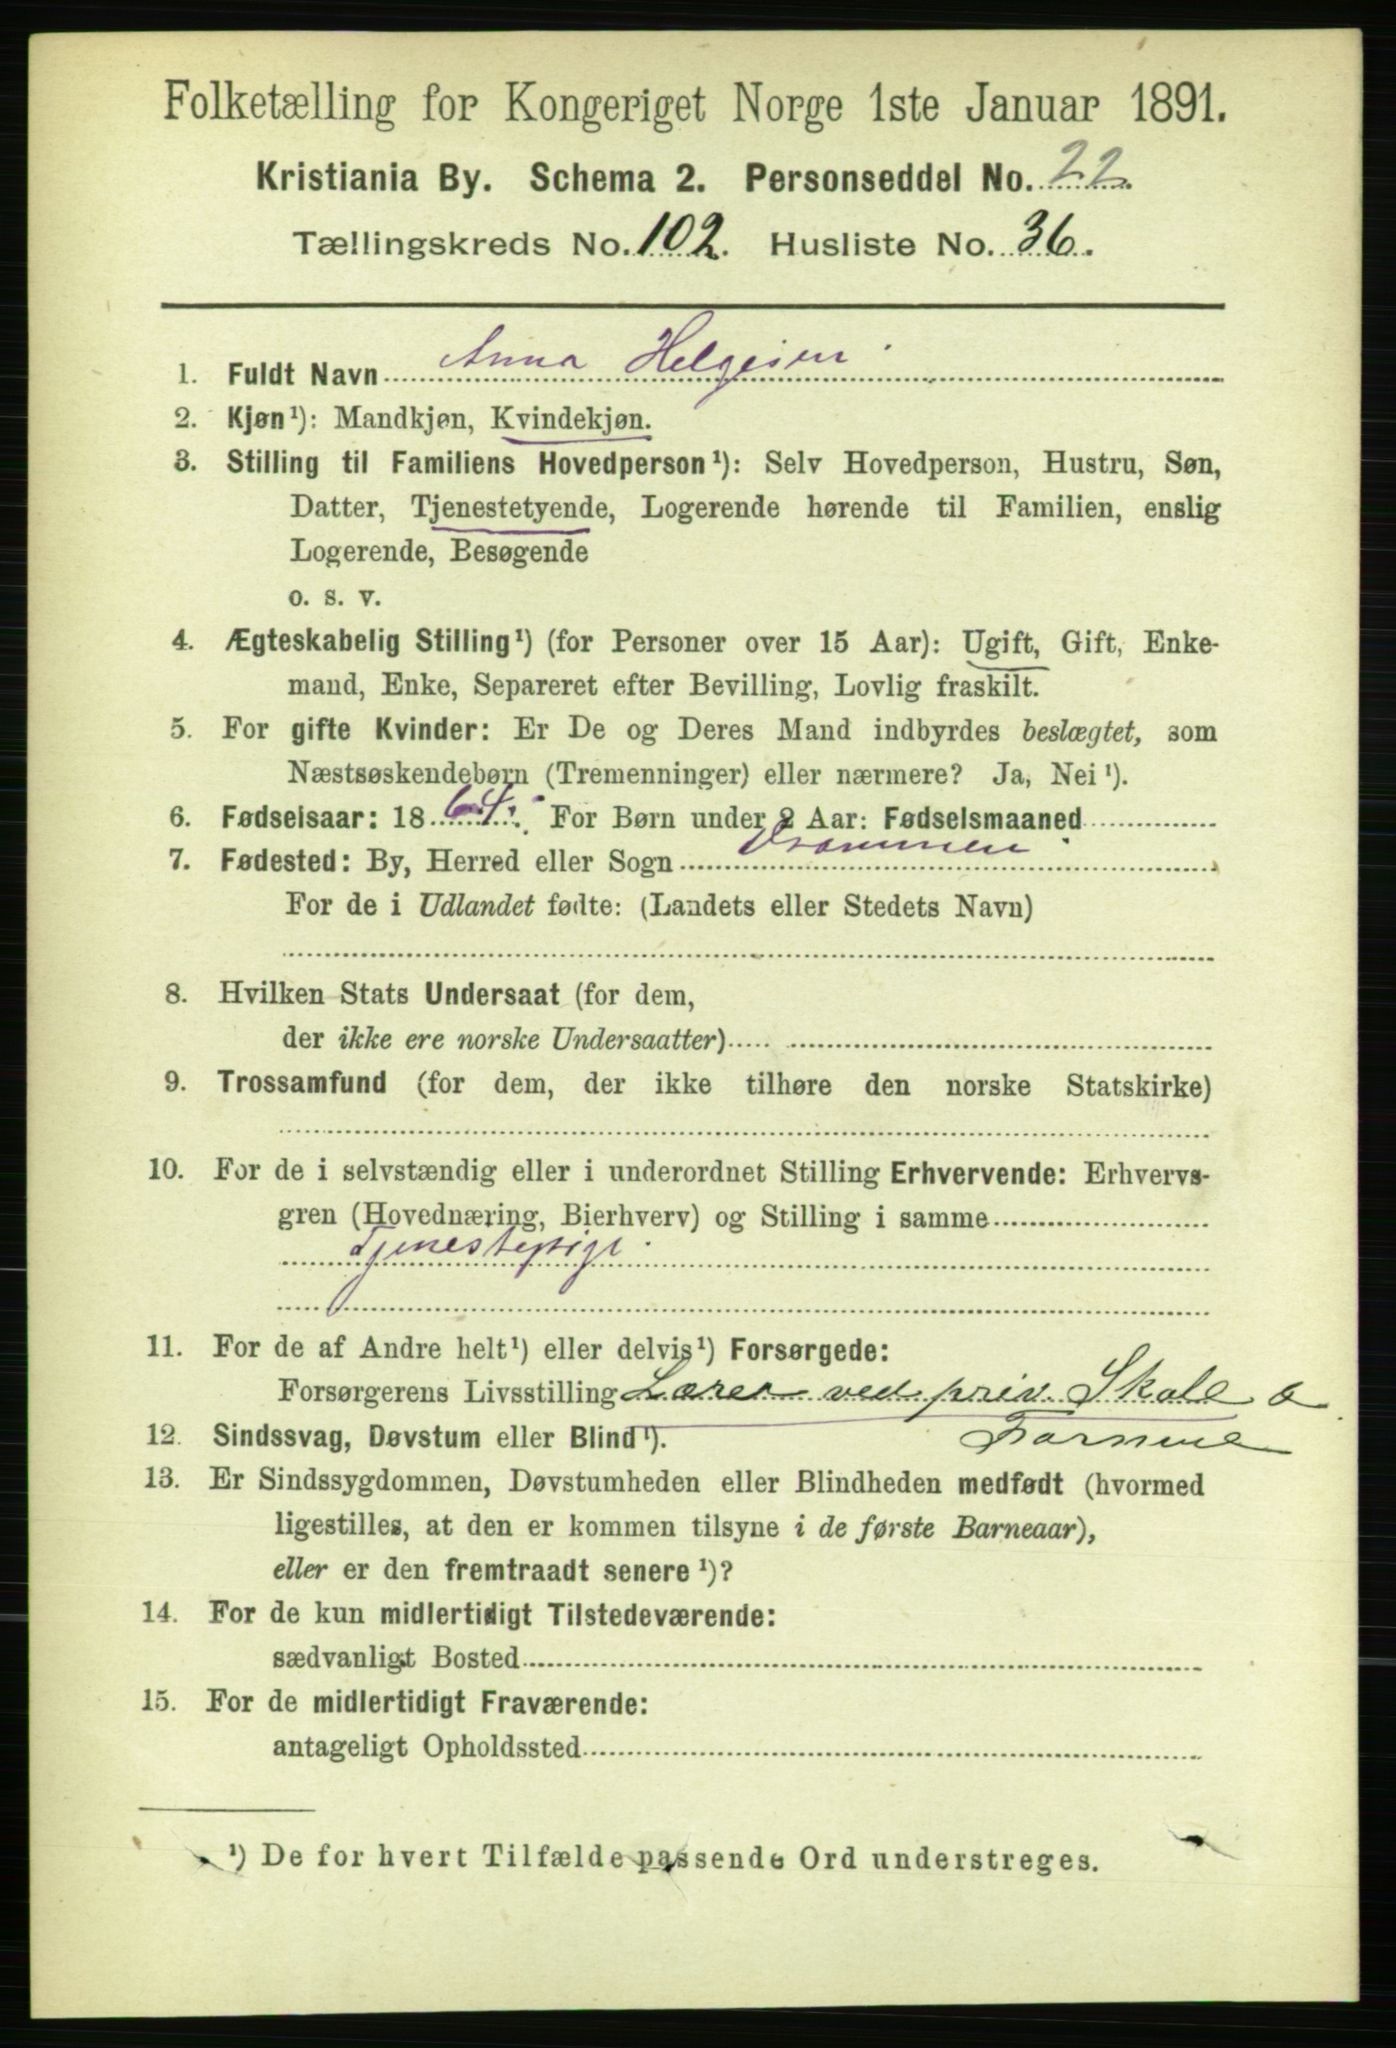 Folketælling for Kongeriget Norge 1ste Januar 1891.
Kristiania By. Schema 2. Personseddel No. 22.
Tællingskreds No. 102. Husliste No. 36.
1. Fuldt Navn Anna Helgesen
2. Kjøn¹): Mandkjøn, Kvindekjøn.
3. Stilling til Familiens Hovedperson¹): Selv Hovedperson, Hustru, Søn,
Datter, Tjenestetyende, Logerende hørende til Familien, enslig
Logerende, Besøgende
o. s. v.
4. Ægteskabelig Stilling¹) (for Personer over 15 Aar): Ugift, Gift, Enke-
mand, Enke, Separeret efter Bevilling, Lovlig fraskilt.
5. For gifte Kvinder: Er De og Deres Mand indbyrdes beslægtet, som
Næstsøskendebørn (Tremenninger) eller nærmere? Ja, Nei¹).
6. Fødselsaar: 1864. For Børn under 2 Aar: Fødselsmaaned
7. Fødested: By, Herred eller Sogn Drammen
For de i Udlandet fødte: (Landets eller Stedets Navn)
8. Hvilken Stats Undersaat (for dem,
der ikke ere norske Undersaatter)
9. Trossamfund (for dem, der ikke tilhøre den norske Statskirke)
10. For de i selvstændig eller i underordnet Stilling Erhvervende: Erhvervs-
gren (Hovednæring, Bierhverv) og Stilling i samme
Tjenestepige
11. For de af Andre helt¹) eller delvis¹) Forsørgede:
Forsørgerens Livsstilling Lærer ved priv. Skole o
12. Sindssvag, Døvstum eller Blind¹).
13. Er Sindssygdommen, Døvstumheden eller Blindheden medfødt (hvormed
ligestilles, at den er kommen tilsyne i de første Barneaar),
eller er den fremtraadt senere¹)?
14. For de kun midlertidigt Tilstedeværende:
sædvanligt Bosted
15. For de midlertidigt Fraværende:
antageligt Opholdssted
¹) De for hvert Tilfælde passende Ord understreges.